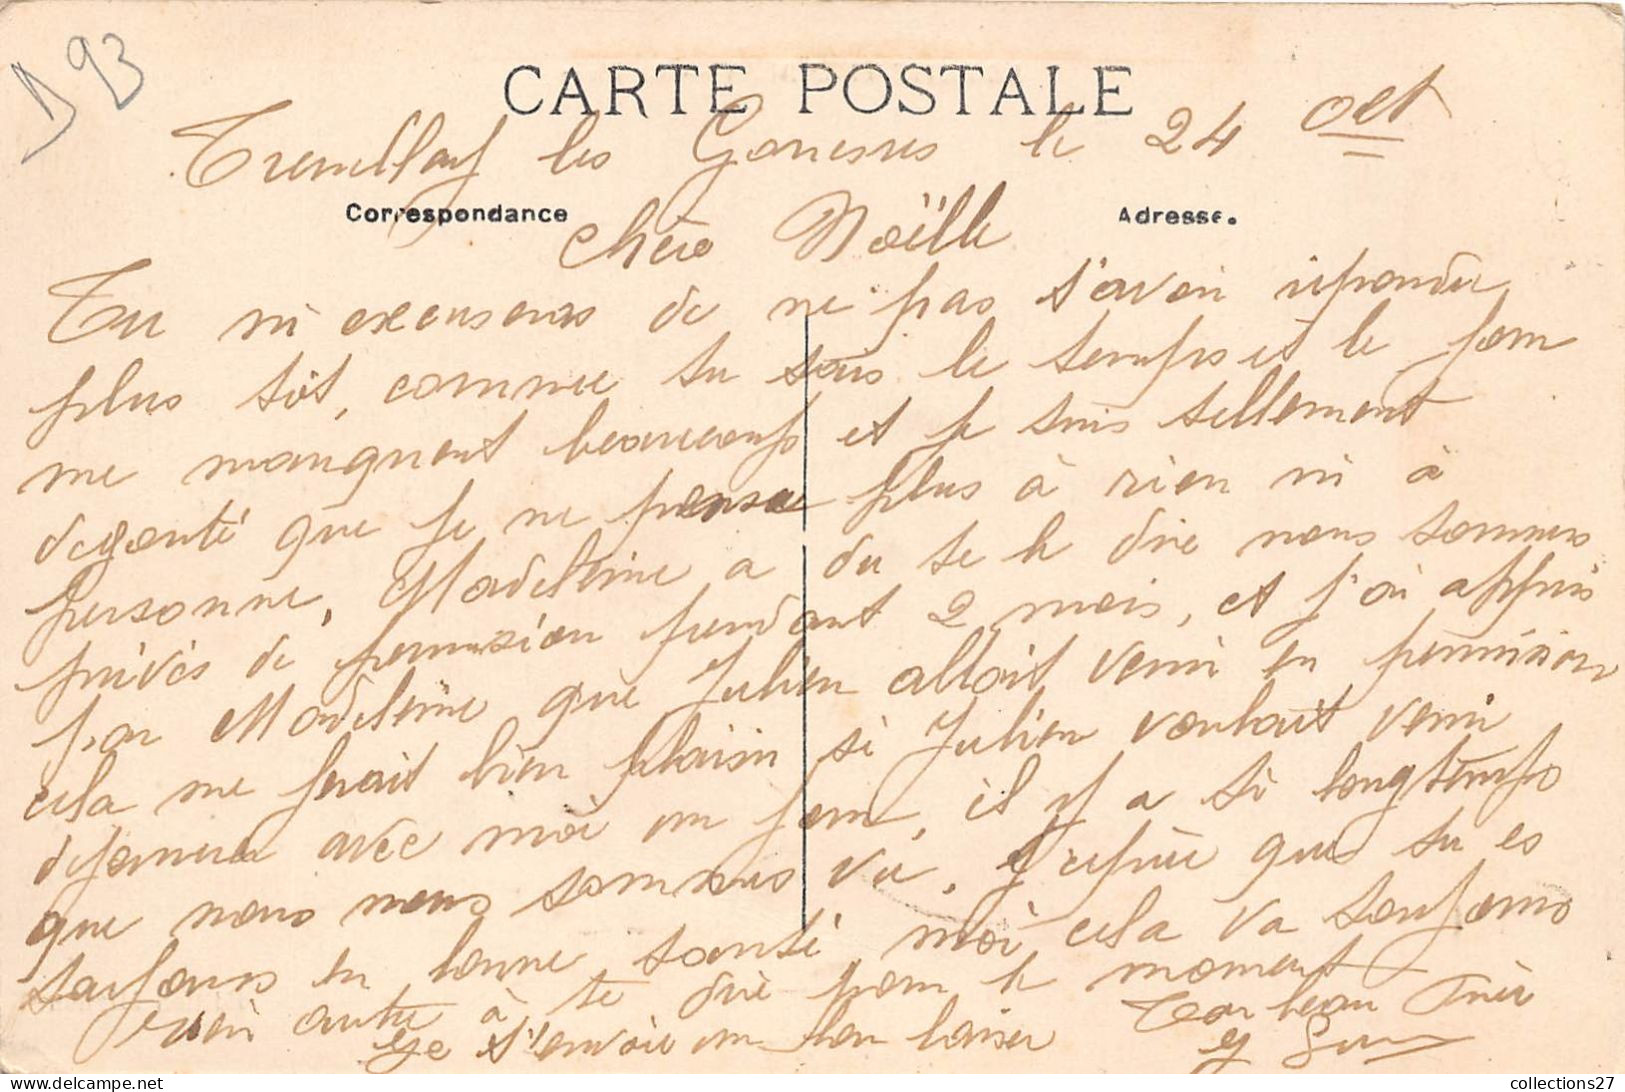 D 93
CARTE POSTALE
Tremblay les Gonesses le 24 oct
Correspondance
Adresse.
Chère Noëlle
Tu m'excuseras de ne pas t'avoir répondu
plus tôt, comme tu sais le temps et le jour
me manquent beaucoup et je suis tellement
dégouté que je ne pense plus à rien ni à
personne, Madeleine a du te le dire nous sommes
privés de permission pendant 2 mois, et j'ai appris
par Madeleine que Julien allait venir en permission
cela me ferait bien plaisir si Julien voulait venir
déjeuner avec moi un jour, il y a si longtemps
que nous nous sommes vu. J'espère que tu es
toujours en bonne santé moi cela va toujours
rien autre à te dire pour le moment
Je t'envoie un bon baiser Ton beau frère
collections27